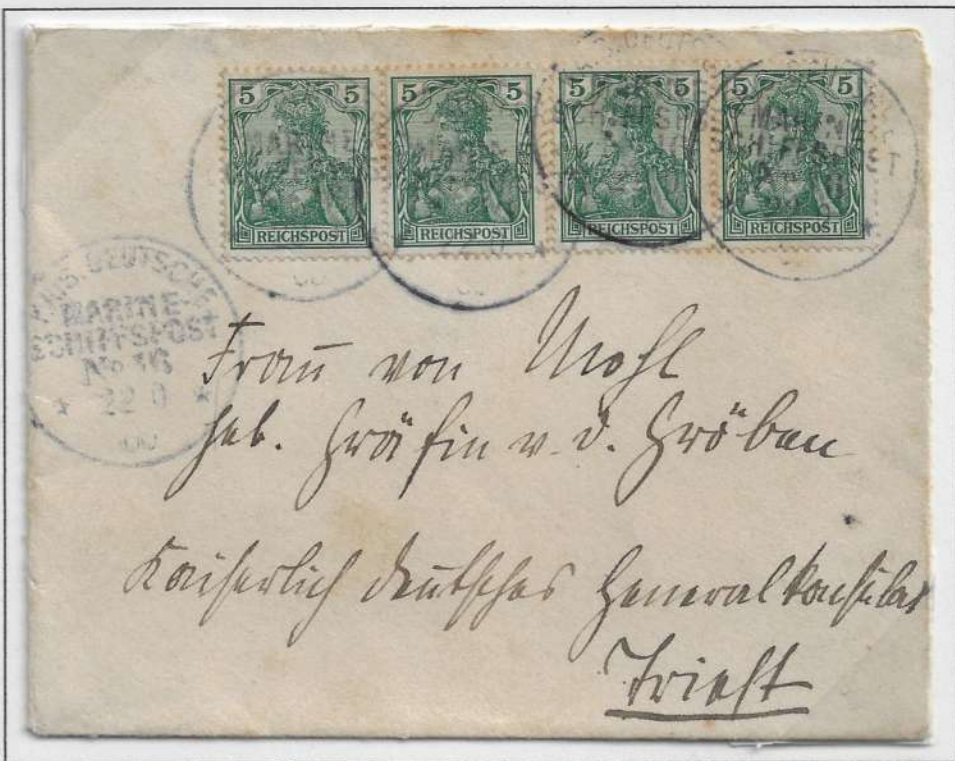 5 5 5 5 5 5 5 5
REICHSPOST REICHSPOST REICHSPOST REICHSPOST
KAIS. DEUTSCHE
MARINE-
SCHIFFSPOST
No 16
* 22 *
00
Frau von Mohl
geb. Gräfin v. d. Gröben
Kaiserlich deutsches Generalkonsulat
Triest